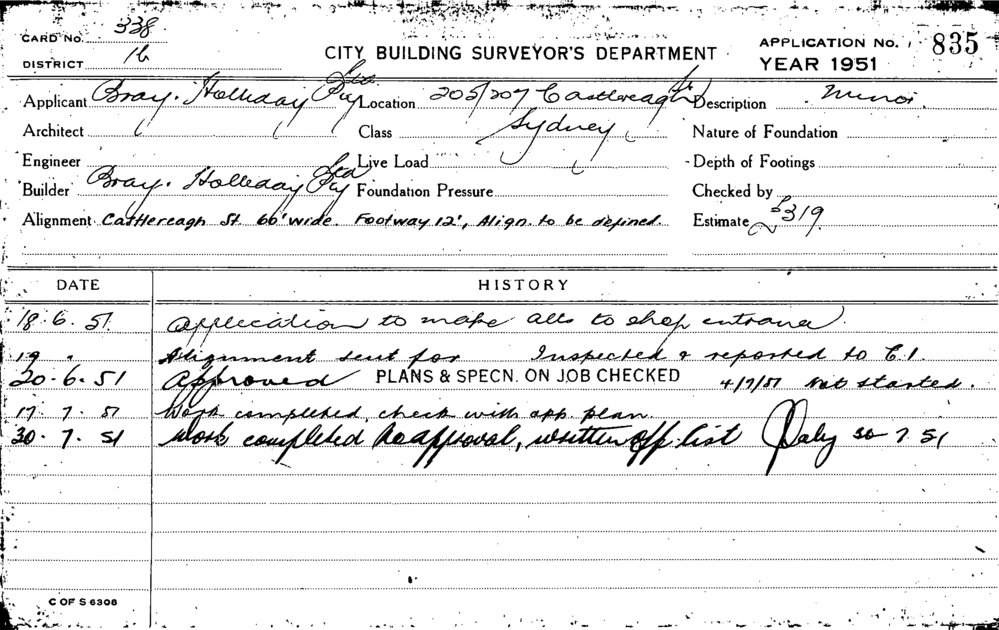 CARD No. 338
DISTRICT 16
CITY BUILDING SURVEYOR'S DEPARTMENT
APPLICATION No. 835
YEAR 1951
Applicant Bray. Holliday Pty Ltd Location 205/207 Castlereagh St Description Minor.
Architect Class Sydney Nature of Foundation
Engineer Live Load Depth of Footings
Builder Bray. Holliday Pty Ltd Foundation Pressure Checked by
Alignment Castlereagh St. 66' wide. Footway 12', Align. to be defined. Estimate £319
DATE HISTORY
18.6.51 Application to make alts to shop entrance.
19 " Alignment sent for Inspected & reported to C.I.
20.6.51 Approved PLANS & SPECN. ON JOB CHECKED 4/7/51 Not started.
17.7.51 Work completed, check with app. plan.
30.7.51 Work completed to approval, written off list Daly 30 7 51
C OF S 6308